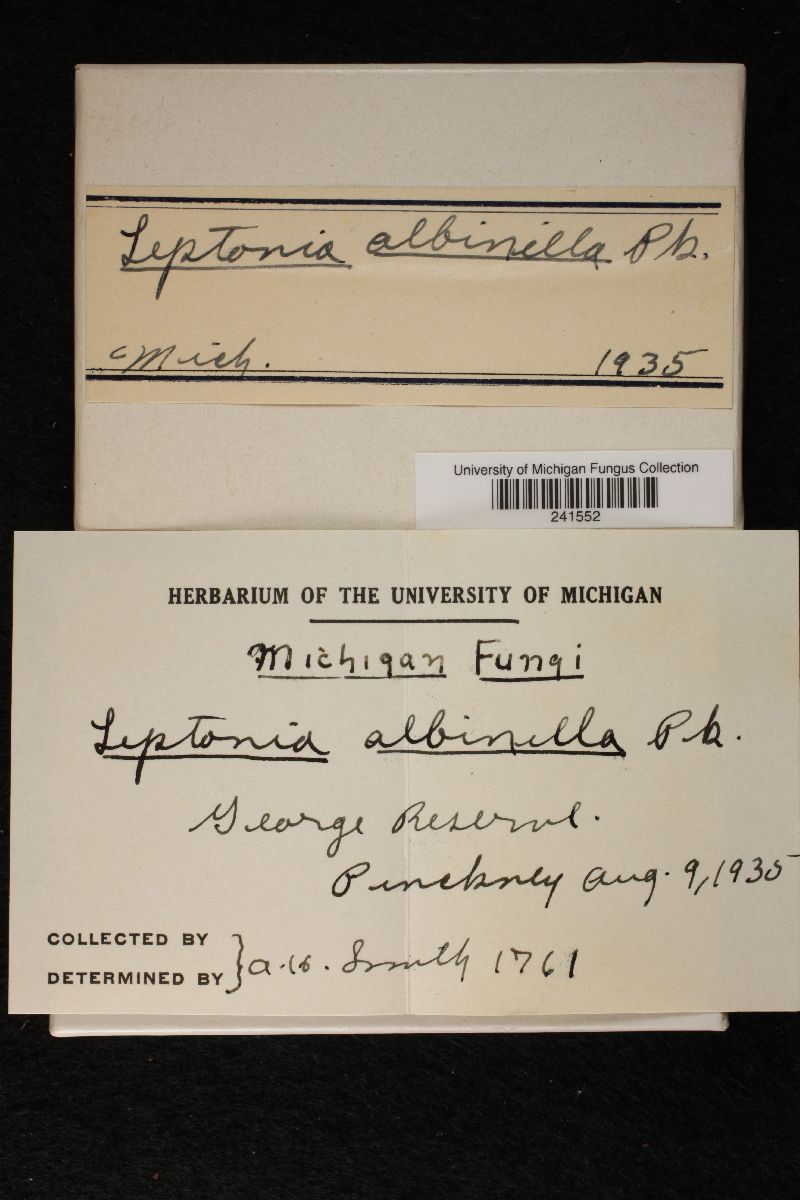 Leptonia albinella Pk.
Mich. 1935
University of Michigan Fungus Collection
241552
HERBARIUM OF THE UNIVERSITY OF MICHIGAN
Michigan Fungi
Leptonia albinella Pk.
George Reserve.
Pinckney Aug. 9, 1935
COLLECTED BY
DETERMINED BY } A.H. Smith 1761